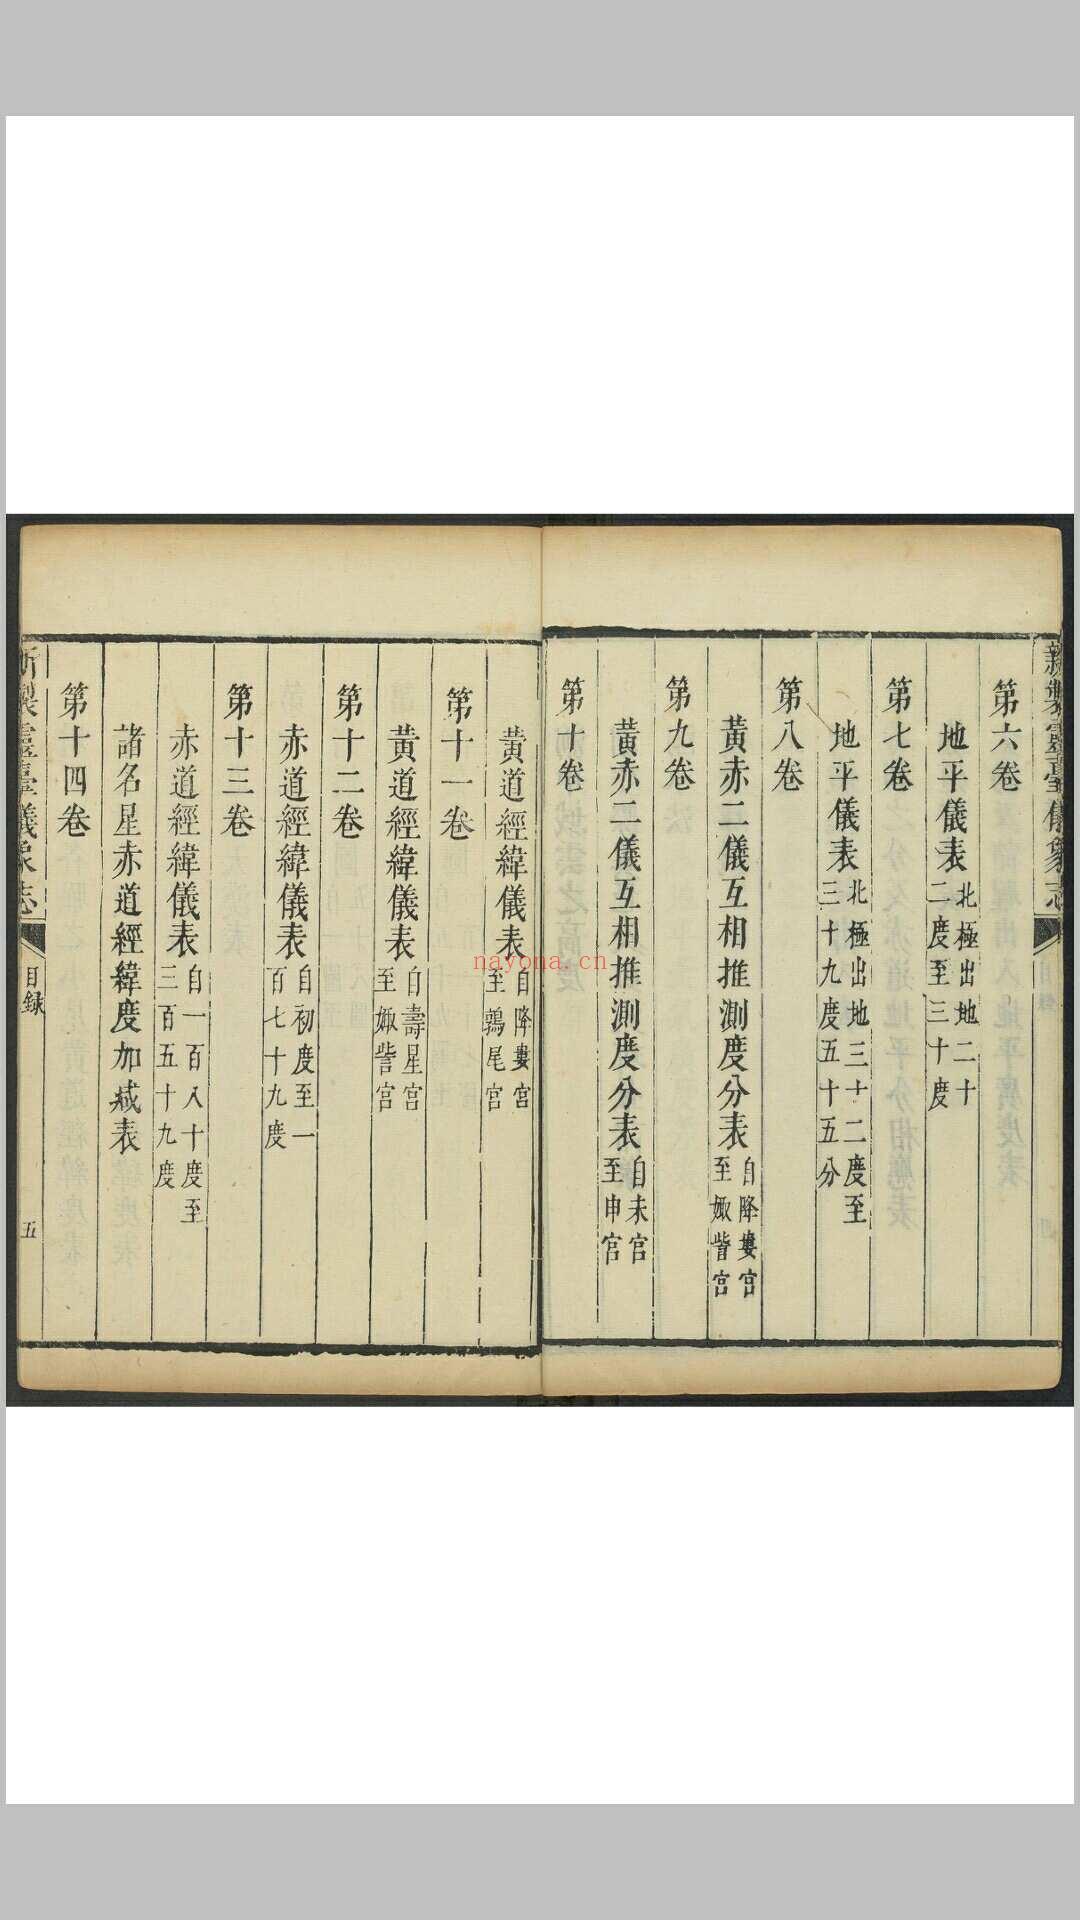 新製靈臺儀象志
第六卷
地平儀表 北極出地二十
二度至三十度
第七卷
地平儀表 北極出地三十二度至
三十九度五十五分
第八卷
黃赤二儀互相推測度分表 自降婁宮
至娵訾宮
第九卷
黃赤二儀互相推測度分表 自未宮
至申宮
第十卷
黃道經緯儀表 自降婁宮
至鶉尾宮
第十一卷
黃道經緯儀表 自壽星宮
至娵訾宮
第十二卷
赤道經緯儀表 自初度至一
百七十九度
第十三卷
赤道經緯儀表 自一百八十度至
三百五十九度
諸名星赤道經緯度加减表
第十四卷
新製靈臺儀象志 目録 五
nayona.cn